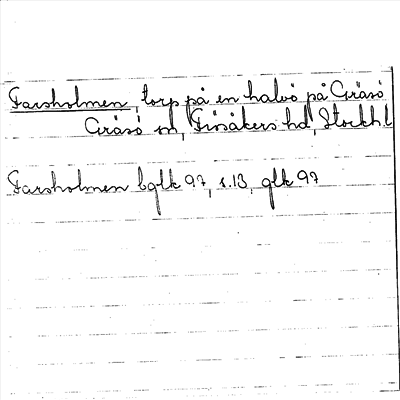 Farsholmen, torp på en halvö på Gräsö
Gräsö sn, Frösåkers hd, Stockh. l
Farsholmen bglk 97, s. 13, glk 97